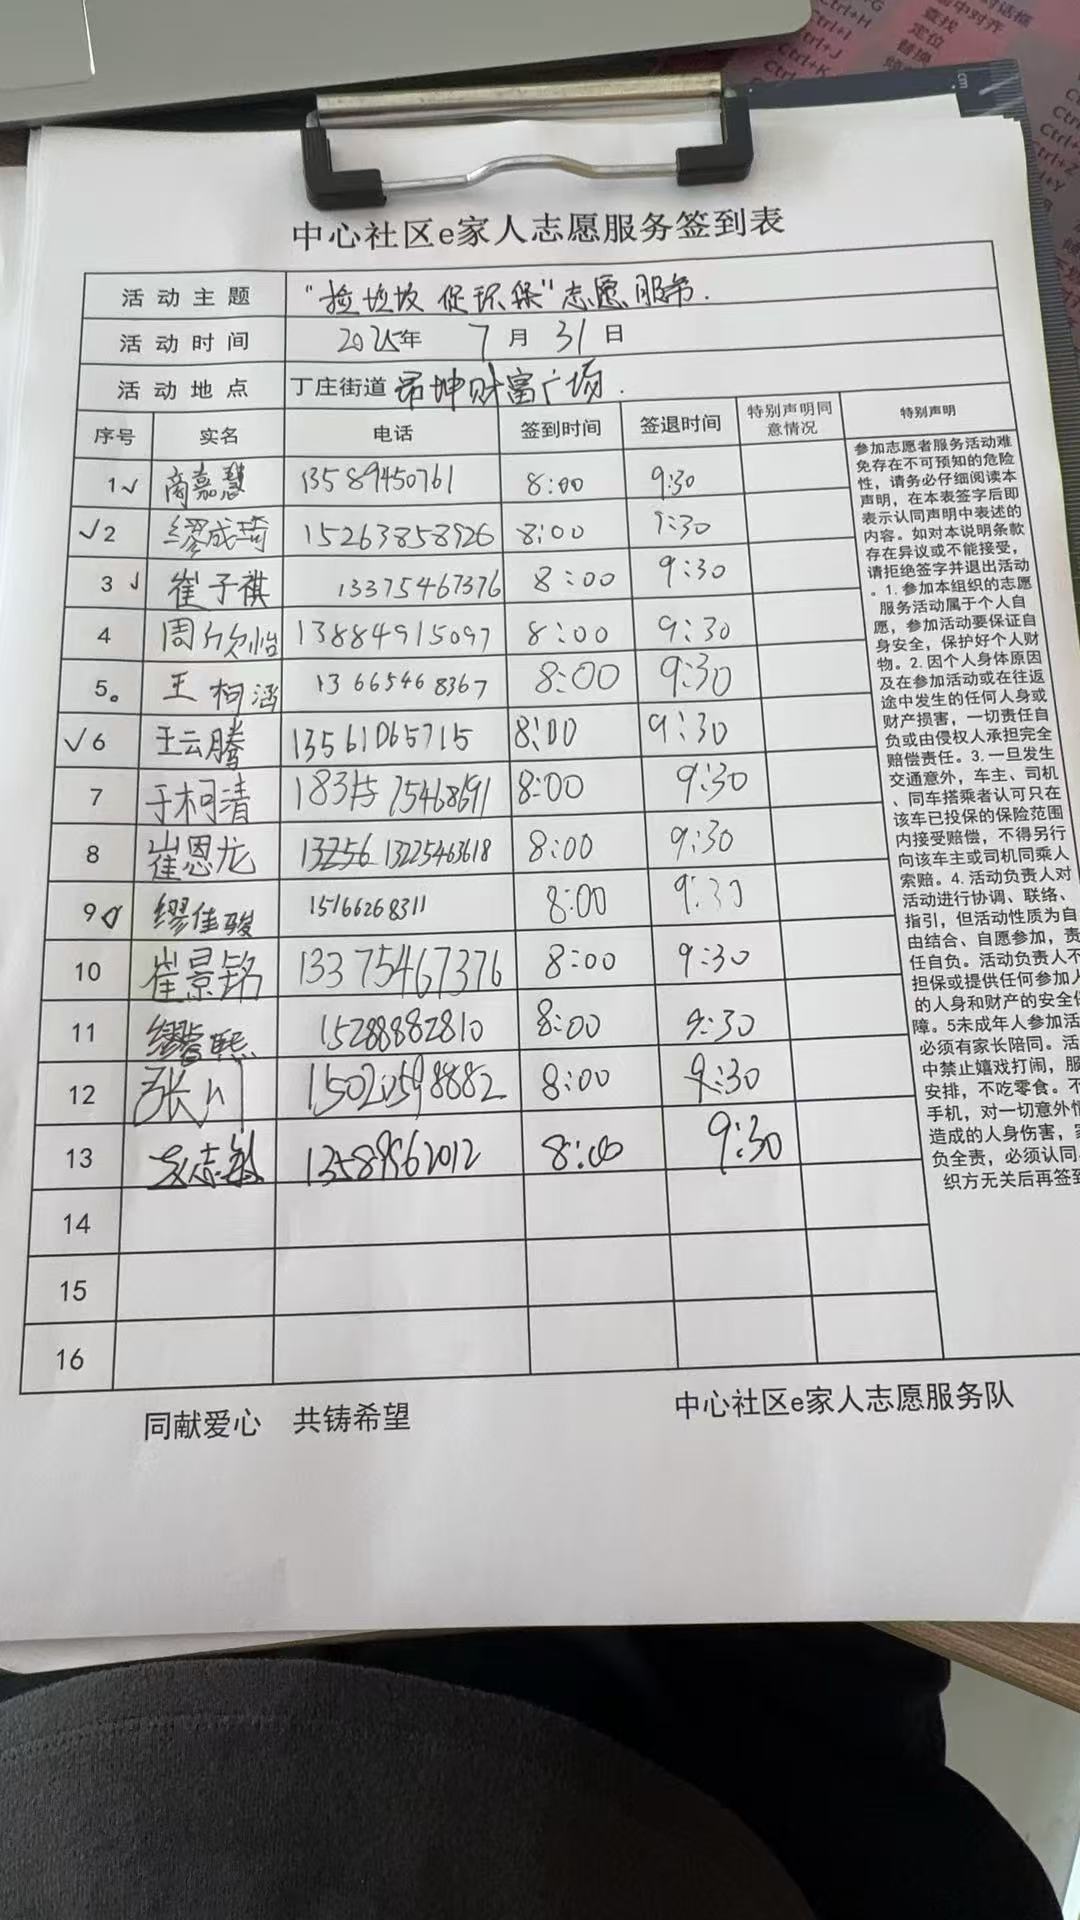 中心社区e家人志愿服务签到表
活动主题 "捡垃圾 促环保"志愿服务.
活动时间 2025年 7月 31日
活动地点 丁庄街道 昂坤财富广场.
序号 实名 电话 签到时间 签退时间 特别声明同意情况 特别声明
1√ 商嘉慧 13589450761 8:00 9:30
√2 缪成琦 15263858926 8:00 9:30
3√ 崔子祺 13375467376 8:00 9:30
4 13884915097 8:00 9:30
5。 王柯涵 13665468367 8:00 9:30
√6 王云腾 13561065715 8:00 9:30
7 于柯清 8:00 9:30
8 崔恩龙 13256 13225463618 8:00 9:30
9 缪佳骏 15166268311 8:00 9:30
10 崔景铭 13375467376 8:00 9:30
11 15288882810 8:00 9:30
12 张川 15020598882 8:00 9:30
13 13589962012 8:00 9:30
14
15
16
参加志愿者服务活动难
免存在不可预知的危险
性，请务必仔细阅读本
声明，在本表签字后即
表示认同声明中表述的
内容。如对本说明条款
存在异议或不能接受，
请拒绝签字并退出活动
。1.参加本组织的志愿
服务活动属于个人自
愿，参加活动要保证自
身安全，保护好个人财
物。2.因个人身体原因
及在参加活动或在往返
途中发生的任何人身或
财产损害，一切责任自
负或由侵权人承担完全
赔偿责任。3.一旦发生
交通意外，车主、司机
、同车搭乘者认可只在
该车已投保的保险范围
内接受赔偿，不得另行
向该车主或司机同乘人
索赔。4.活动负责人对
活动进行协调、联络、
指引，但活动性质为自
由结合、自愿参加，责
任自负。活动负责人不
担保或提供任何参加人
的人身和财产的安全保
障。5未成年人参加活
必须有家长陪同。活
中禁止嬉戏打闹，服
安排，不吃零食。不
手机，对一切意外情
造成的人身伤害，家
负全责，必须认同
织方无关后再签到
同献爱心 共铸希望 中心社区e家人志愿服务队
cm
Ctrl+H
Ctrl+I
Ctrl+J
Ctrl+K
查找
定位
替换